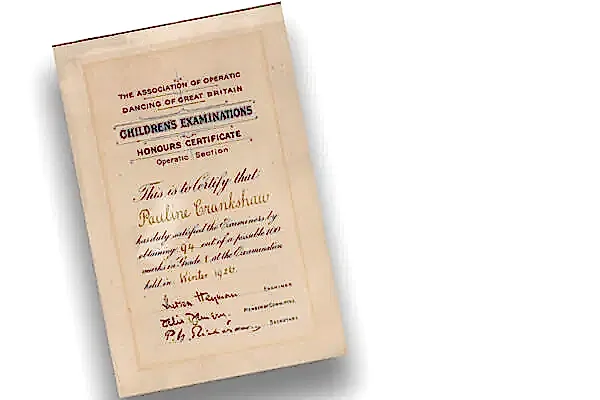 THE ASSOCIATION OF OPERATIC
DANCING OF GREAT BRITAIN
CHILDREN'S EXAMINATIONS
HONOURS CERTIFICATE
Operatic Section
This is to Certify that
Pauline Crankshaw
has duly satisfied the Examiners by
obtaining 94 out of a possible 100
marks in Grade 1 at the Examination
held in Winter 1926
Heyman EXAMINER
MEMBER OF COMMITTEE
P. G. Richardson SECRETARY